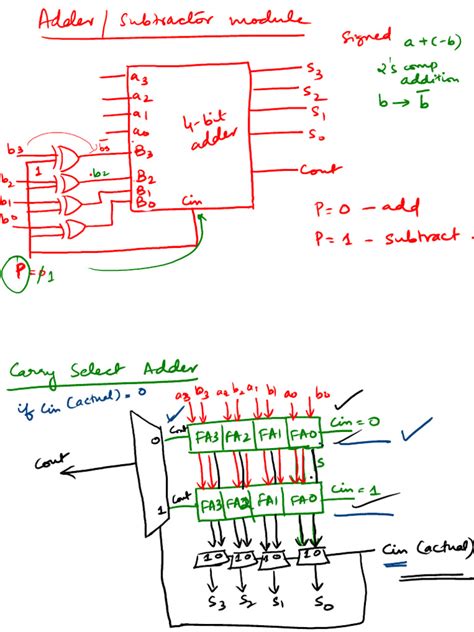 Adder / Subtractor module
Signed a+(-b)
2's comp
addition
b → b̄
a3
a2
a1
a0
B3
B2
B1
B0
4-bit
adder
Cin
S3
S2
S1
S0
Cout
b3
b̄3
1
b2
b2
b1
b0
P = 1
P=0 - add
P=1 - subtract
Carry Select Adder
if Cin (actual) = 0
a3 b3 a2 b2 a1 b1 a0 b0
0
Cout
FA3 FA2 FA1 FA0
Cin = 0
Cout
S
1
Cout
FA3 FA2 FA1 FA0
Cin = 1
1 0
1 0
1 0
1 0
Cin (actual)
S3 S2 S1 S0